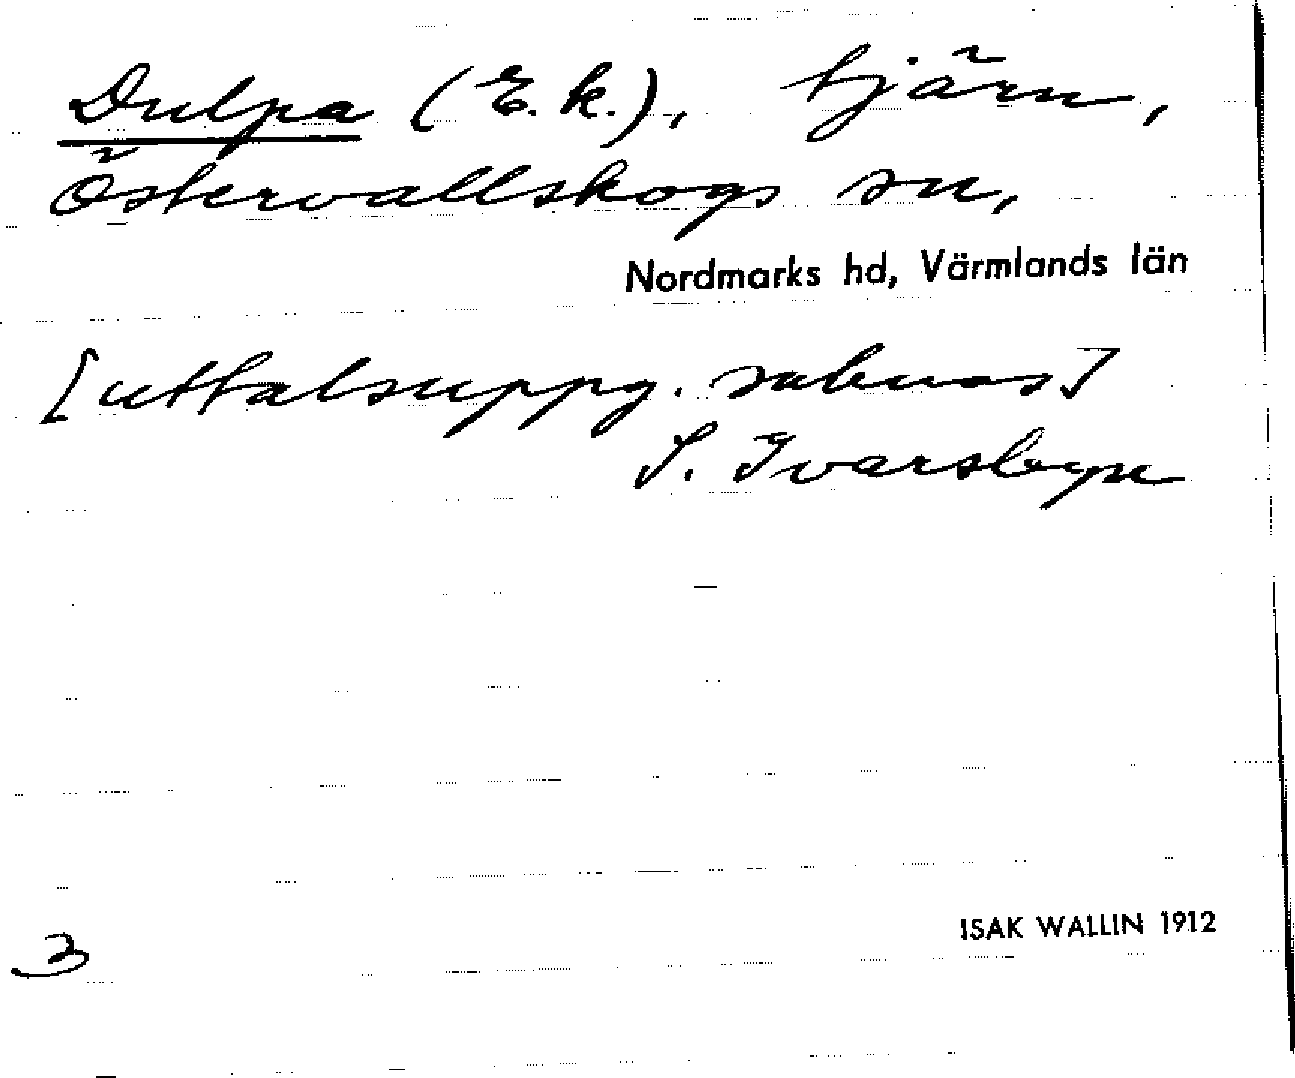 Dulpa (E.k.), tjärn,
Östervallskogs sn,
Nordmarks hd, Värmlands län
[uttalsuppg. saknas]
S. Ivarsbyn
ISAK WALLIN 1912
3